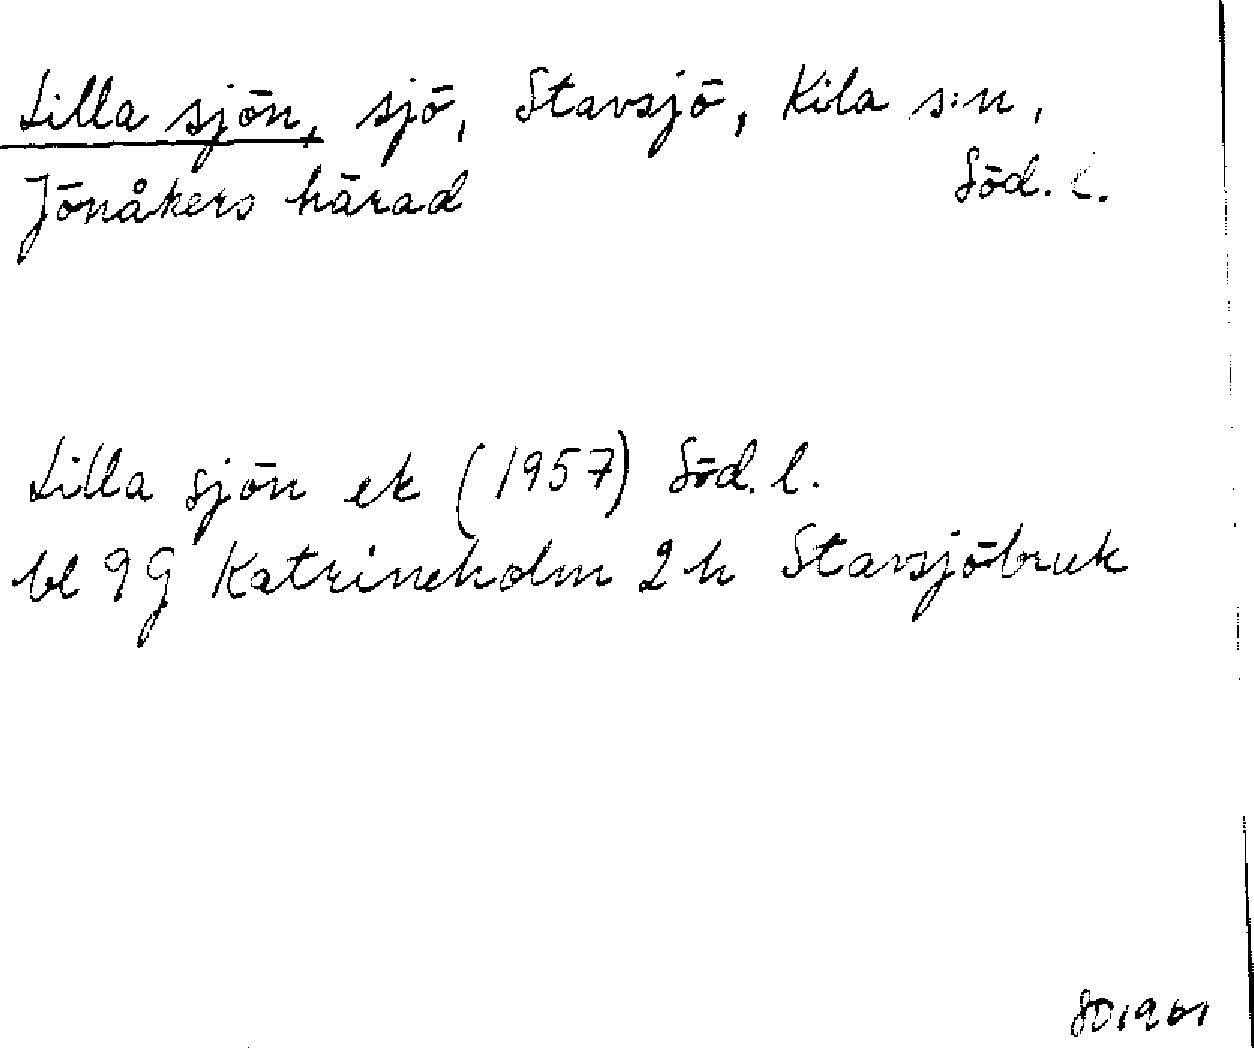 Lilla sjön, sjö, Stavsjö, Kila s:n,
Jönåkers härad Söd. l.
Lilla sjön ek (1957) Söd. l.
bl 9G Katrineholm 2h Stavsjöbruk
SD1961